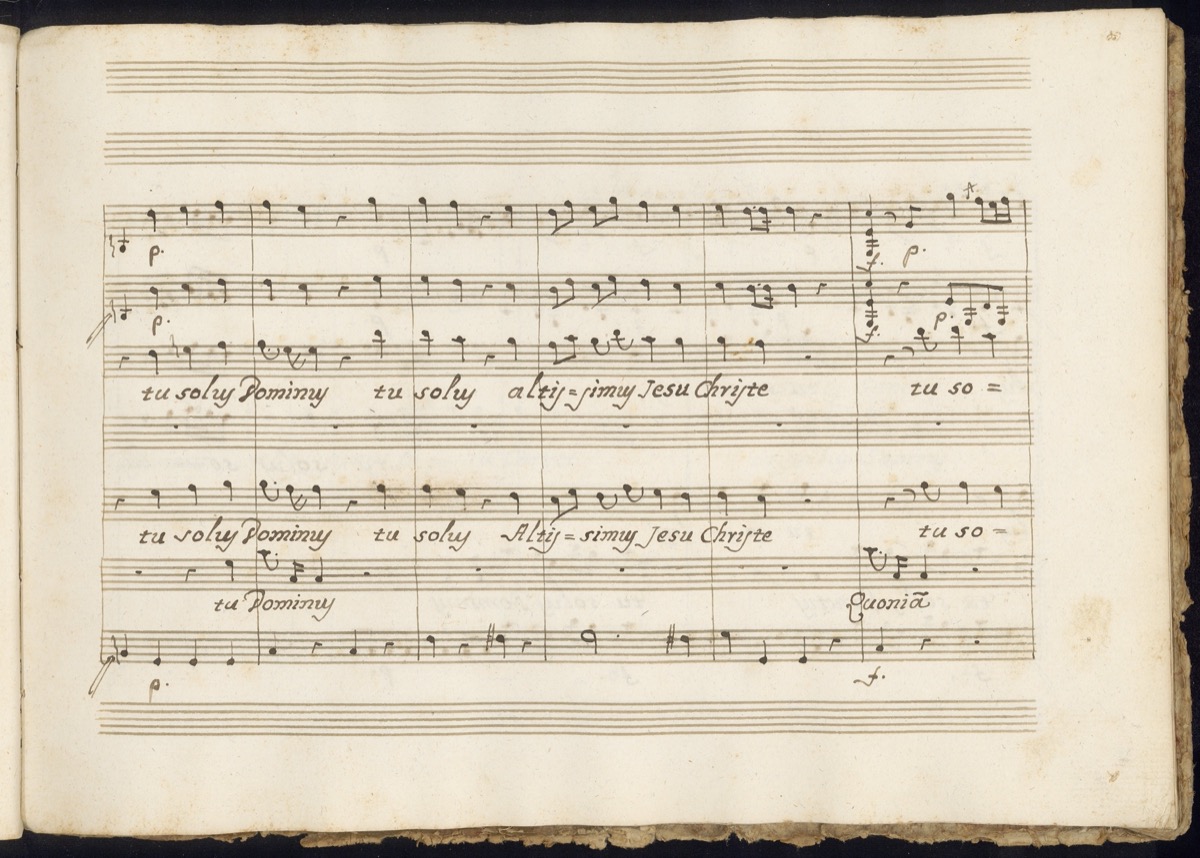 p.
f. p.
p.
p.
f.
tu solus Dominus tu solus altis=simus Jesu Christe tu so =
tu solus Dominus tu solus Altis=simus Jesu Christe tu so =
tu Dominus Quoniã
p. f.